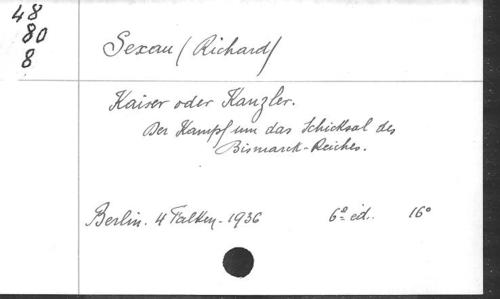 48
80
8
Sexau (Richard)
Kaiser oder Kanzler.
Der Kampf um das Schicksal des
Bismarck-Reiches.
Berlin. 4 Falken. 1936 6º éd. 16º